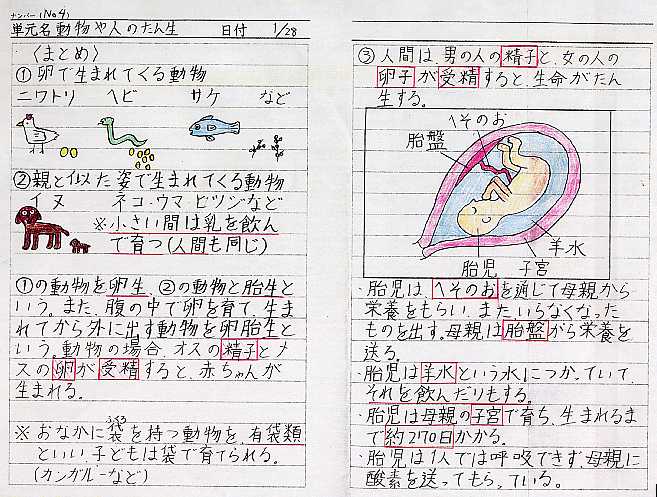 ナンバー(No4)
単元名 動物や人のたん生 日付 1/28
〈まとめ〉
①卵で生まれてくる動物
ニワトリ ヘビ サケ など
②親と似た姿で生まれてくる動物
イヌ ネコ・ウマ ヒツジなど
※小さい間は乳を飲ん
で育つ(人間も同じ)
①の動物を卵生、②の動物と胎生と
いう。また、腹の中で卵を育て、生ま
れてから外に出す動物を卵胎生と
いう。動物の場合、オスの精子とメ
スの卵が受精すると、赤ちゃんが
生まれる。
※おなかに袋を持つ動物を、有袋類
ふくろ
といい子どもは袋で育てられる。
(カンガルーなど)
③人間は、男の人の精子と、女の人の
卵子が受精すると、生命がたん
生する。
へそのお
胎盤
羊水
胎児 子宮
・胎児は、へそのおを通じて母親から
栄養をもらい、また、いらなくなった
ものを出す。母親は胎盤から栄養を
送る。
・胎児は羊水という水につかっていて
それを飲んだりもする。
・胎児は母親の子宮で育ち、生まれるま
で約270日かかる。
・胎児は1人では呼吸できず、母親に
酸素を送ってもらっている。